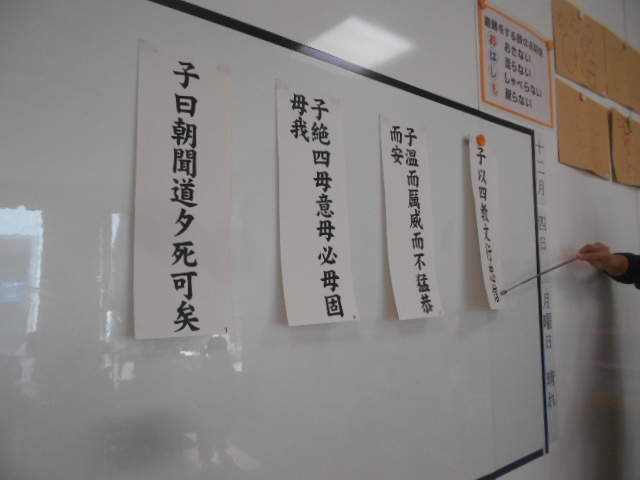 避難をする時のお約束
お おさない
は 走らない
し しゃべらない
も 戻らない
十二月 四日 月曜日 晴れ
子以四教文行忠信
子温而厲威而不猛恭
而安
子絶四毋意毋必毋固
毋我
子曰朝聞道夕死可矣